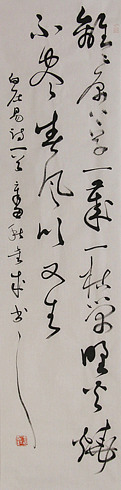 離離原上草一歲一枯榮野火燒
不盡春風吹又生
白居易詩一首